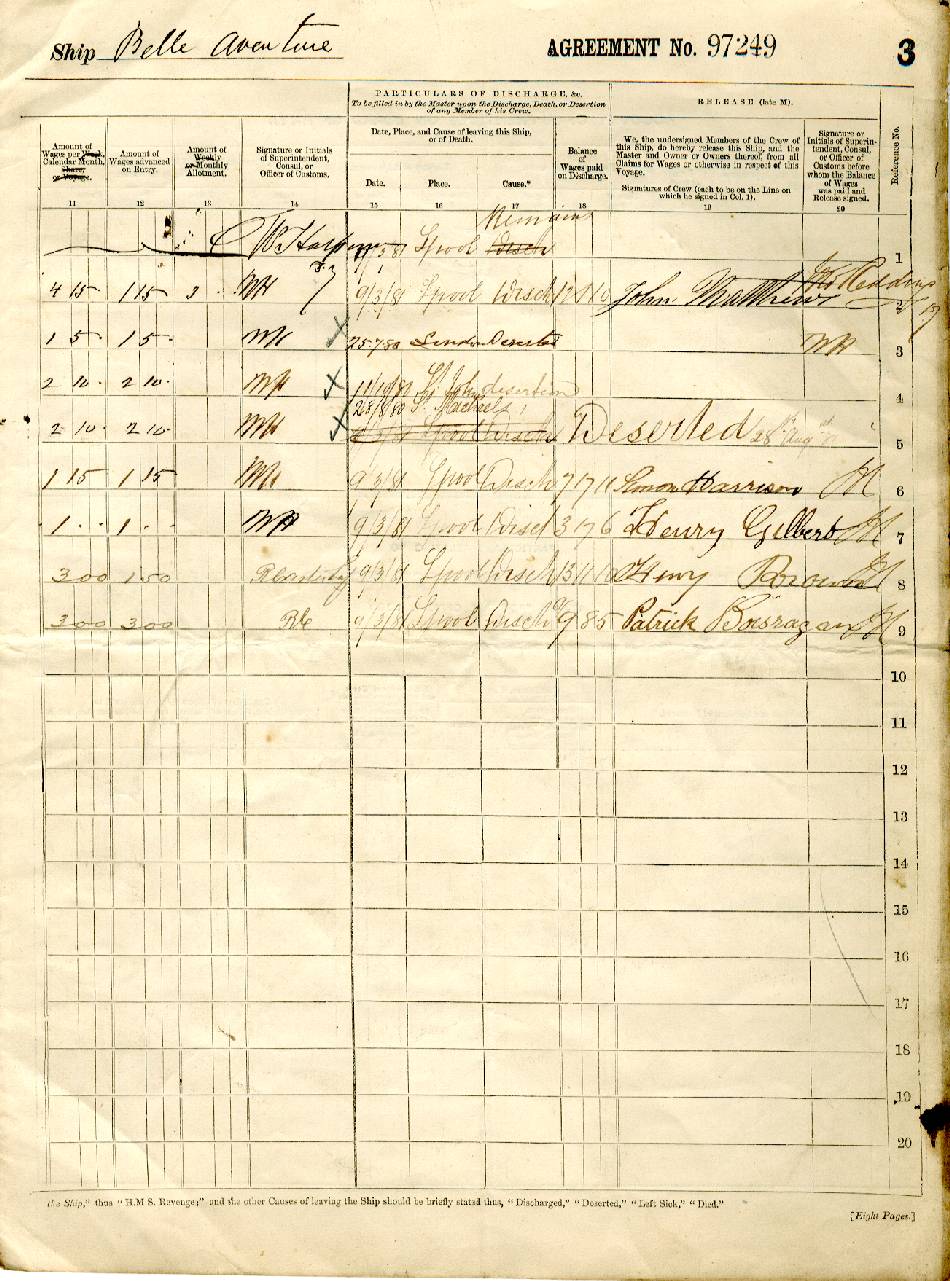 Ship Belle Aventure AGREEMENT No. 97249 3
PARTICULARS OF DISCHARGE, &c.
To be filled in by the Master upon the Discharge, Death, or Desertion of any Member of his Crew.
RELEASE (late M).
Amount of Wages per Week, Calendar Month, Share, or Voyage.
Amount of Wages advanced on Entry.
Amount of Weekly or Monthly Allotment.
Signature or Initials of Superintendent, Consul, or Officer of Customs.
Date, Place, and Cause of leaving this Ship, or of Death.
Date. Place. Cause.*
Balance of Wages paid on Discharge.
We, the undersigned Members of the Crew of this Ship, do hereby release this Ship, and the Master and Owner or Owners thereof, from all Claims for Wages or otherwise in respect of this Voyage.
Signatures of Crew (each to be on the Line on which he signed in Col. 1).
Signature or Initials of Superintendent, Consul, or Officer of Customs before whom the Balance of Wages was paid and Release signed.
Reference No.
11 12 13 14 15 16 17 18 19 20
Remains
9/3/81 Lpool Disch 1
4 15 1 15 3 WH 9/3/81 Lpool Disch John Matthews 2
1 5 1 5 WH 25-7-80 London Deserted WH 3
2 10 2 10 WH St John desertion 4
28/8/80 St Michaels
2 10 2 10 WH 9/3/81 Lpool Disch Deserted 5
1 15 1 15 WH 9/3/81 Lpool Disch 7 7 11 Simon Harrison 6
1 1 WH 9/3/81 Lpool Disch 3 17 6 Henry Gilbert 7
3 00 1 50 9/3/81 Lpool Disch 13 11 10 Henry Brown 8
3 00 3 00 9/3/81 Lpool Disch 9 8 5 Patrick 9
10
11
12
13
14
15
16
17
18
19
20
the Ship," thus "H.M.S. Revenge;" and the other Causes of leaving the Ship should be briefly stated thus, "Discharged," "Deserted," "Left Sick," "Died."
[Eight Pages.]